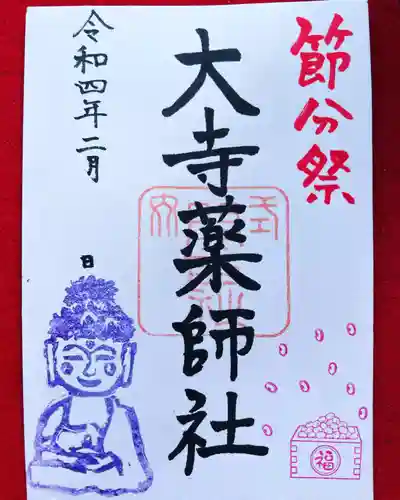 節分祭
大寺薬師社
令和四年二月
日
福